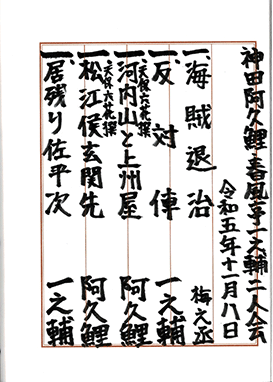 神田阿久鯉 春風亭一之輔 二人会
令和五年十一月八日
一、海賊退治 梅之丞
一、反対俥 一之輔
一、天保六花撰 河内山と上州屋 阿久鯉
一、天保六花撰 松江侯玄関先 阿久鯉
一、居残り佐平次 一之輔